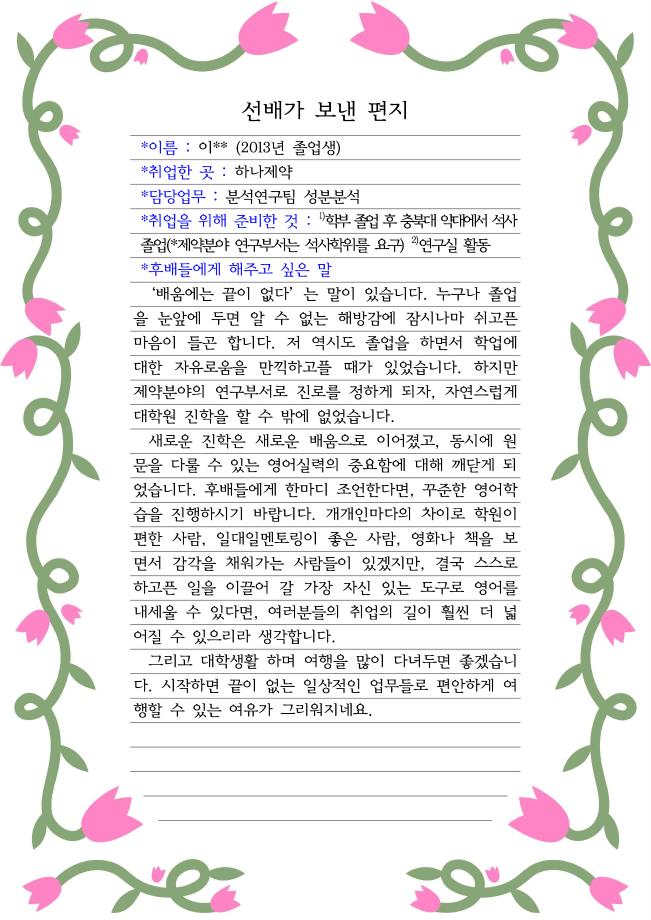 선배가 보낸 편지
*이름 : 이** (2013년 졸업생)
*취업한 곳 : 하나제약
*담당업무 : 분석연구팀 성분분석
*취업을 위해 준비한 것 : 1)학부 졸업 후 충북대 약대에서 석사
졸업(*제약분야 연구부서는 석사학위를 요구) 2)연구실 활동
*후배들에게 해주고 싶은 말
‘배움에는 끝이 없다’ 는 말이 있습니다. 누구나 졸업
을 눈앞에 두면 알 수 없는 해방감에 잠시나마 쉬고픈
마음이 들곤 합니다. 저 역시도 졸업을 하면서 학업에
대한 자유로움을 만끽하고플 때가 있었습니다. 하지만
제약분야의 연구부서로 진로를 정하게 되자, 자연스럽게
대학원 진학을 할 수 밖에 없었습니다.
새로운 진학은 새로운 배움으로 이어졌고, 동시에 원
문을 다룰 수 있는 영어실력의 중요함에 대해 깨닫게 되
었습니다. 후배들에게 한마디 조언한다면, 꾸준한 영어학
습을 진행하시기 바랍니다. 개개인마다의 차이로 학원이
편한 사람, 일대일멘토링이 좋은 사람, 영화나 책을 보
면서 감각을 채워가는 사람들이 있겠지만, 결국 스스로
하고픈 일을 이끌어 갈 가장 자신 있는 도구로 영어를
내세울 수 있다면, 여러분들의 취업의 길이 훨씬 더 넓
어질 수 있으리라 생각합니다.
그리고 대학생활 하며 여행을 많이 다녀두면 좋겠습니
다. 시작하면 끝이 없는 일상적인 업무들로 편안하게 여
행할 수 있는 여유가 그리워지네요.